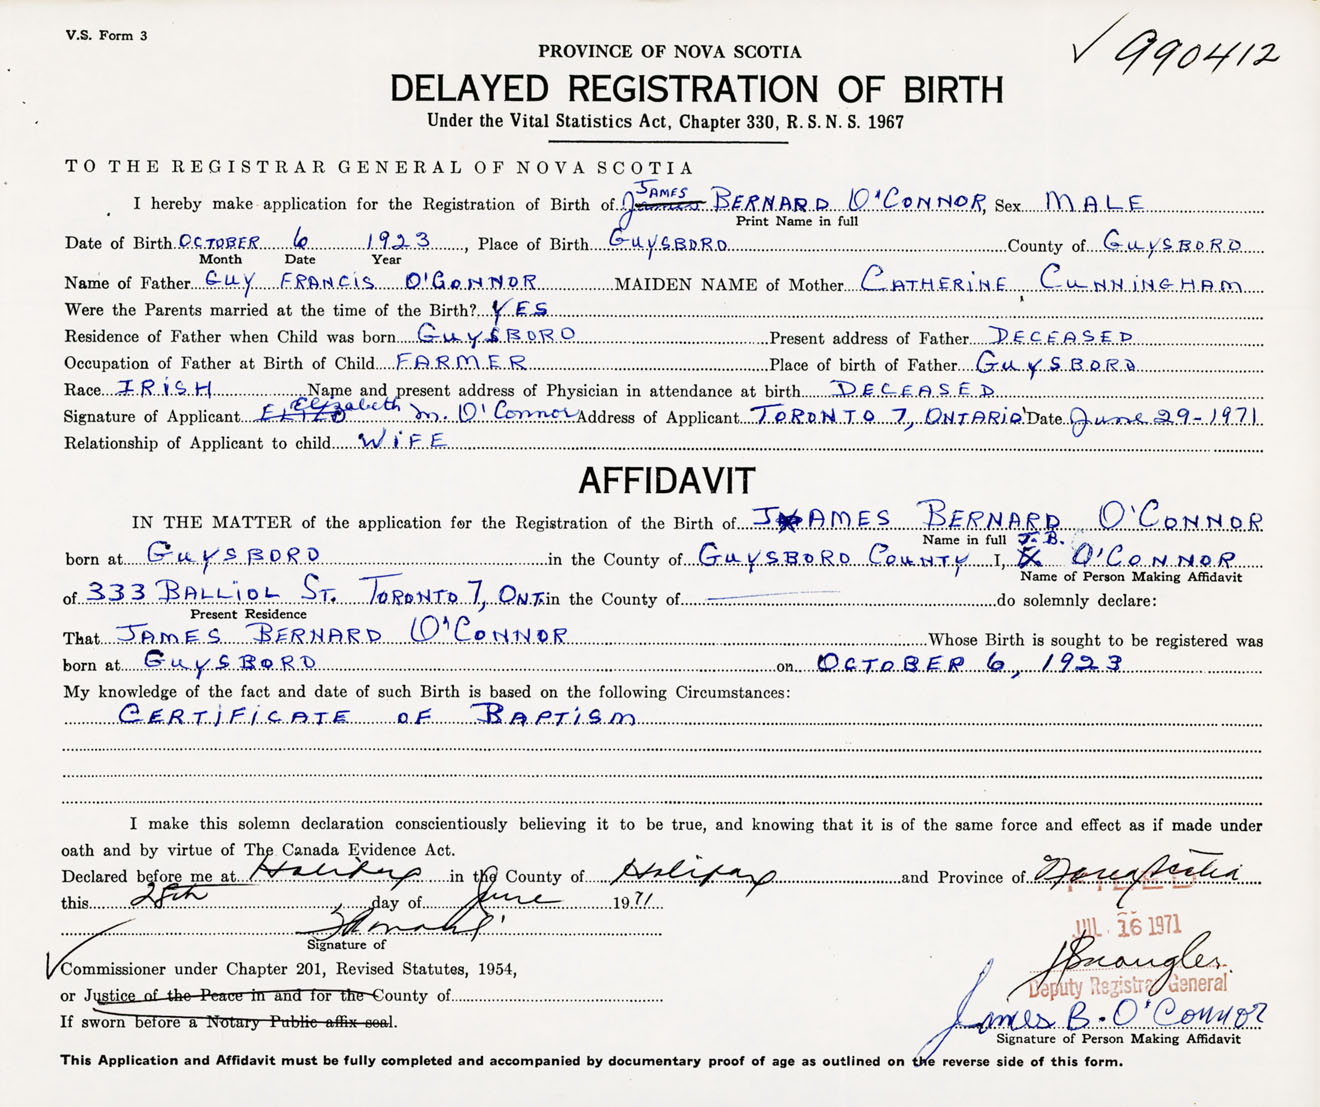 V.S. Form 3
✓ 990412
PROVINCE OF NOVA SCOTIA
DELAYED REGISTRATION OF BIRTH
Under the Vital Statistics Act, Chapter 330, R. S. N. S. 1967
TO THE REGISTRAR GENERAL OF NOVA SCOTIA
I hereby make application for the Registration of Birth of JAMES BERNARD O'CONNOR, Sex MALE
Print Name in full
Date of Birth OCTOBER 6 1923, Place of Birth GUYSBORO County of GUYSBORO
Month Date Year
Name of Father GUY FRANCIS O'CONNOR MAIDEN NAME of Mother CATHERINE CUNNINGHAM
Were the Parents married at the time of the Birth? YES
Residence of Father when Child was born GUYSBORO Present address of Father DECEASED
Occupation of Father at Birth of Child FARMER Place of birth of Father GUYSBORO
Race IRISH Name and present address of Physician in attendance at birth DECEASED
Signature of Applicant Elizabeth M. O'Connor Address of Applicant TORONTO 7, ONTARIO Date June 29-1971
Relationship of Applicant to child WIFE
AFFIDAVIT
IN THE MATTER of the application for the Registration of the Birth of JAMES BERNARD O'CONNOR
Name in full
born at GUYSBORO in the County of GUYSBORO COUNTY I, J.B. O'CONNOR
Name of Person Making Affidavit
of 333 BALLIOL ST. TORONTO 7, ONT. in the County of do solemnly declare:
Present Residence
That JAMES BERNARD O'CONNOR Whose Birth is sought to be registered was
born at GUYSBORO on OCTOBER 6, 1923
My knowledge of the fact and date of such Birth is based on the following Circumstances:
CERTIFICATE OF BAPTISM
I make this solemn declaration conscientiously believing it to be true, and knowing that it is of the same force and effect as if made under
oath and by virtue of The Canada Evidence Act.
Declared before me at Halifax in the County of Halifax and Province of Nova Scotia
this 28th day of June 1971
FILED
JUL 16 1971
Signature of
Commissioner under Chapter 201, Revised Statutes, 1954,
or Justice of the Peace in and for the County of
Deputy Registrar General
If sworn before a Notary Public affix seal.
James B. O'Connor
Signature of Person Making Affidavit
This Application and Affidavit must be fully completed and accompanied by documentary proof of age as outlined on the reverse side of this form.